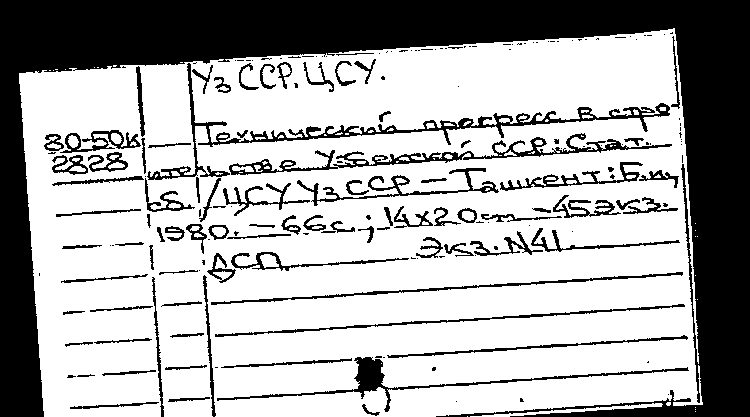 Уз ССР. ЦСУ.
80-50к
2828
Технический прогресс в стро-
ительстве Узбекской ССР: Стат.
сб. / ЦСУ Уз ССР. – Ташкент: Б.и.,
1980. – 66с.; 14х20см – 45экз.
ДСП. Экз. N41.